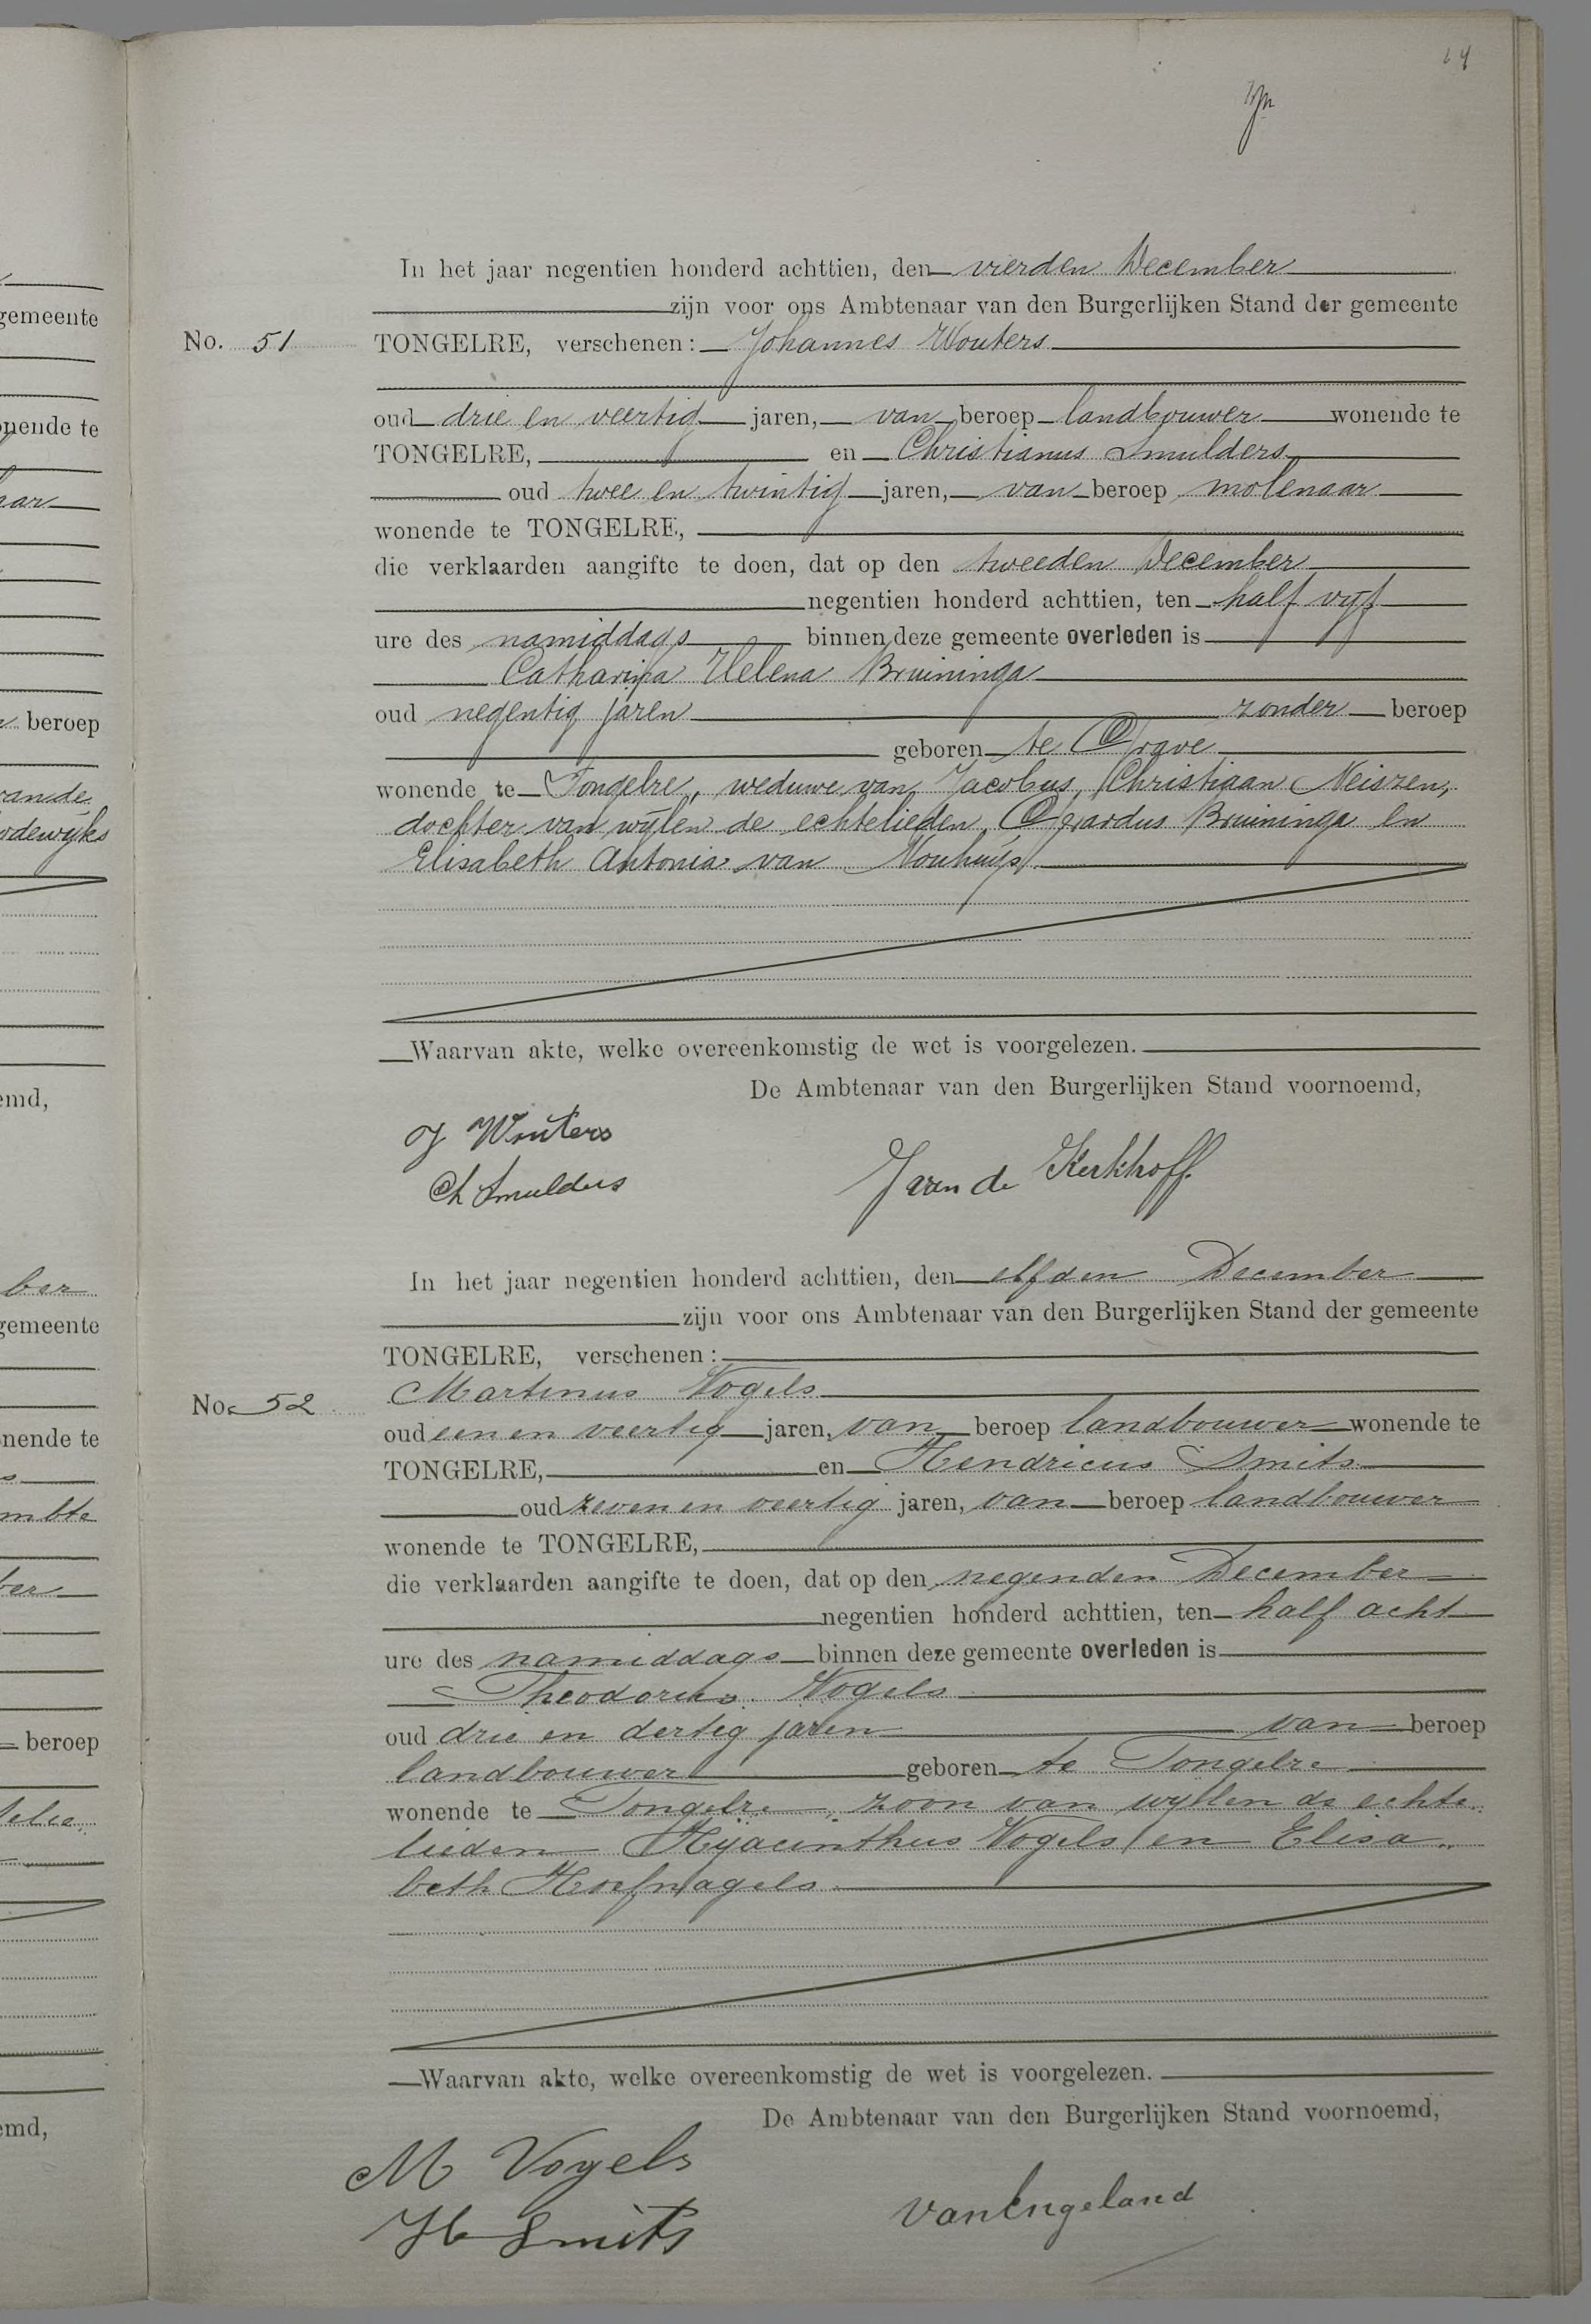 14
In het jaar negentien honderd achttien, den vierden December
zijn voor ons Ambtenaar van den Burgerlijken Stand der gemeente
No. 51 TONGELRE, verschenen: Johannes Wouters
oud drie en veertig jaren, van beroep landbouwer wonende te
TONGELRE, en Christianus Smulders
oud twee en twintig jaren, van beroep molenaar
wonende te TONGELRE,
die verklaarden aangifte te doen, dat op den tweeden December
negentien honderd achttien, ten half vijf
ure des namiddags binnen deze gemeente overleden is
Catharina Helena Bruininga
oud negentig jaren zonder beroep
geboren te Grave
wonende te Tongelre, weduwe van Jacobus, Christiaan Neiszen,
dochter van wijlen de echtelieden, Gerardus Bruininga en
Elisabeth Antonia van Nouhuijs.
Waarvan akte, welke overeenkomstig de wet is voorgelezen.
De Ambtenaar van den Burgerlijken Stand voornoemd,
J Wouters
Ch Smulders
J van de Kerkhoff.
In het jaar negentien honderd achttien, den elfden December
zijn voor ons Ambtenaar van den Burgerlijken Stand der gemeente
TONGELRE, verschenen:
No. 52 Martinus Vogels
oud een en veertig jaren, van beroep landbouwer wonende te
TONGELRE, en Hendricus Smits
oud zeven en veertig jaren, van beroep landbouwer
wonende te TONGELRE,
die verklaarden aangifte te doen, dat op den negenden December
negentien honderd achttien, ten half acht
ure des namiddags binnen deze gemeente overleden is
Theodorus Vogels
oud drie en dertig jaren van beroep
landbouwer geboren te Tongelre
wonende te Tongelre, zoon van wijlen de echte„
lieden Hijacinthus Vogels en Elisa„
beth Hoefnagels.
Waarvan akte, welke overeenkomstig de wet is voorgelezen.
De Ambtenaar van den Burgerlijken Stand voornoemd,
M Vogels
H Smits
vanEngeland